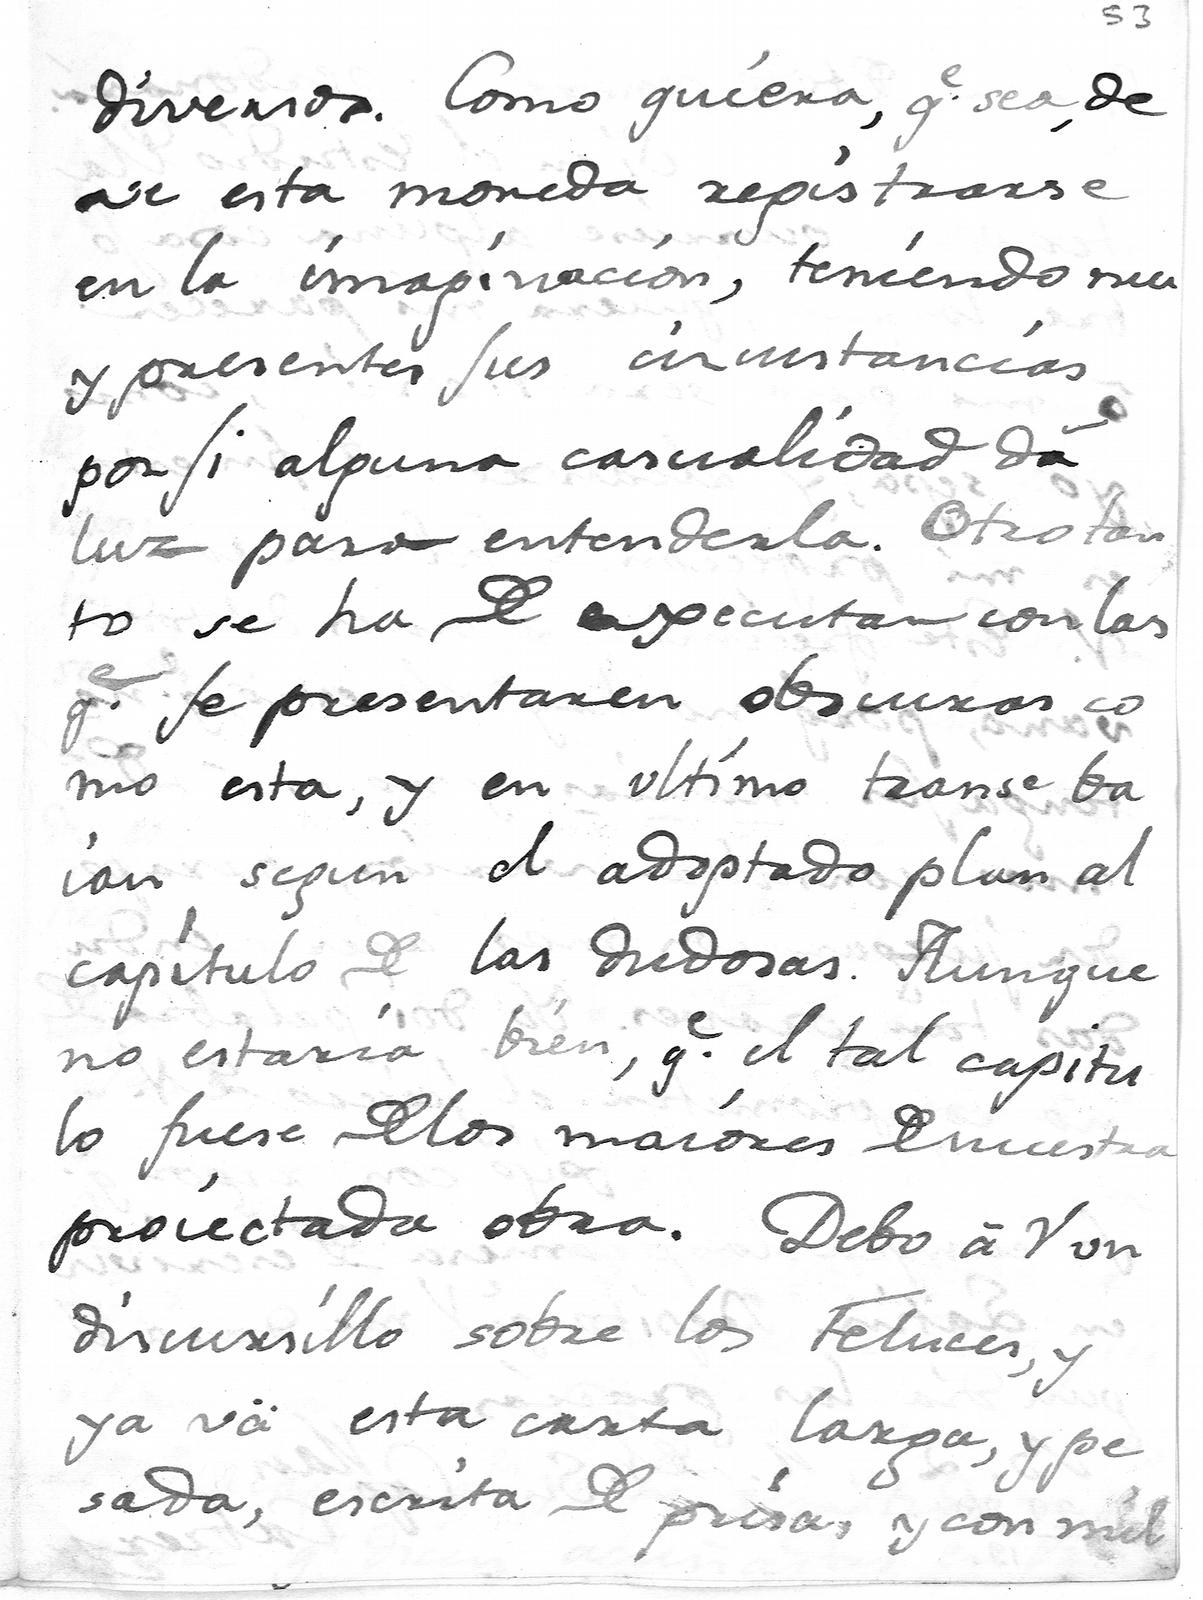 53
diversos. Como quiera, q.e sea, de
ve esta moneda registrarse
en la imaginación, teniendo mui
y presentes sus circustancias
por si alguna casualidad dá
luz para entenderla. Otro tan
to se ha de expecutar con las
q.e se presentaren obscuras co
mo esta, y en ultimo transe ba
ian segun el adoptado plan al
capítulo de las dudosas. Aunque
no estaría bien, q.e el tal capitu
lo fuese de los maiores de nuestra
proiectada obra. Debo ā V un
discursillo sobre los Feluces, y
ya vā esta carta larga, y pe
sada, escrita de prisa, y con mil